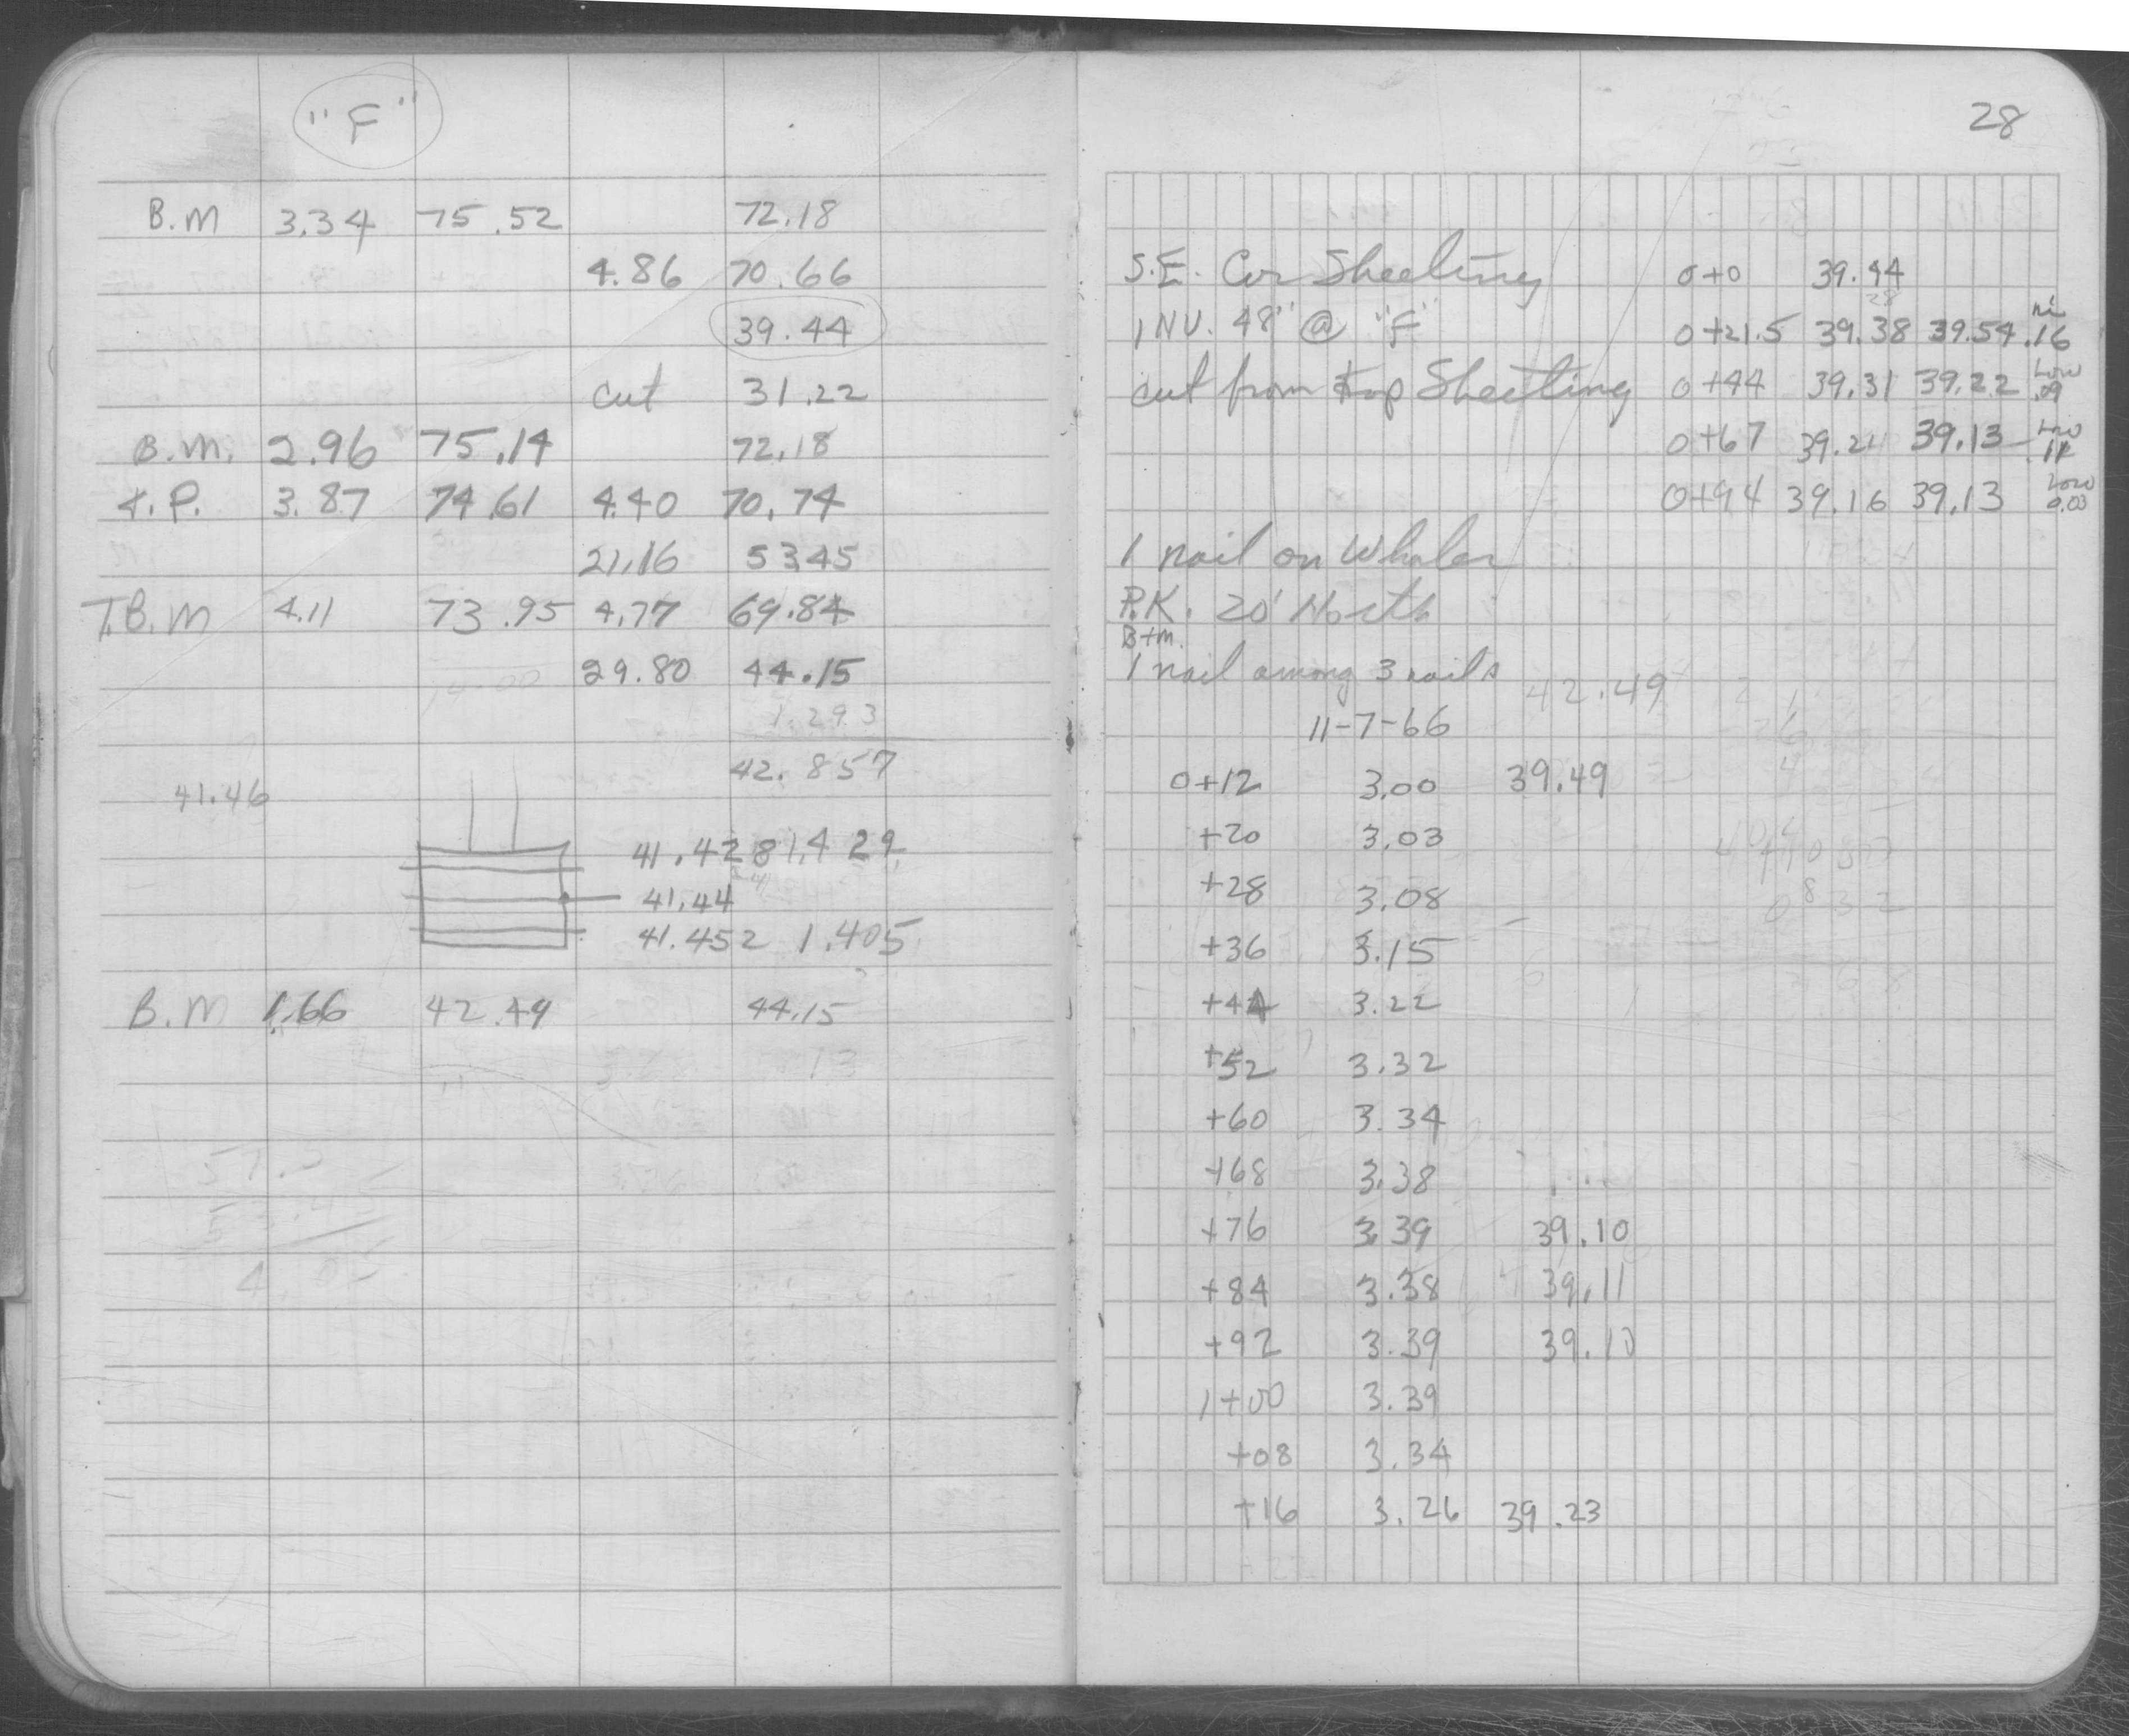 "F"
B.M 3.34 75.52 72.18
4.86 70.66
39.44
cut 31.22
B.M. 2.96 75.14 72.18
T.P. 3.87 74.61 4.40 70.74
21.16 53.45
T.B.M 4.11 73.95 4.77 69.84
29.80 44.15
1.293
42.857
41.46
41.428 1.429
41.44
41.452 1.405
B.M 1.66 42.49 44.15
28
S.E. Cor Sheeting 0+0 39.44
INV. 48" @ "F" 0+21.5 39.38 39.54 hi .16
cut from top Sheeting 0+44 39.31 39.22 Low .09
0+67 39.24 39.13 Low .11
0+94 39.16 39.13 Low 0.03
1 nail on Whaler
P.K. 20' North
B+m.
1 nail among 3 nails 42.49
11-7-66
0+12 3.00 39.49
+20 3.03
+28 3.08
+36 3.15
+44 3.22
+52 3.32
+60 3.34
+68 3.38
+76 3.39 39.10
+84 3.38 39.11
+92 3.39 39.10
1+00 3.39
+08 3.34
+16 3.26 39.23